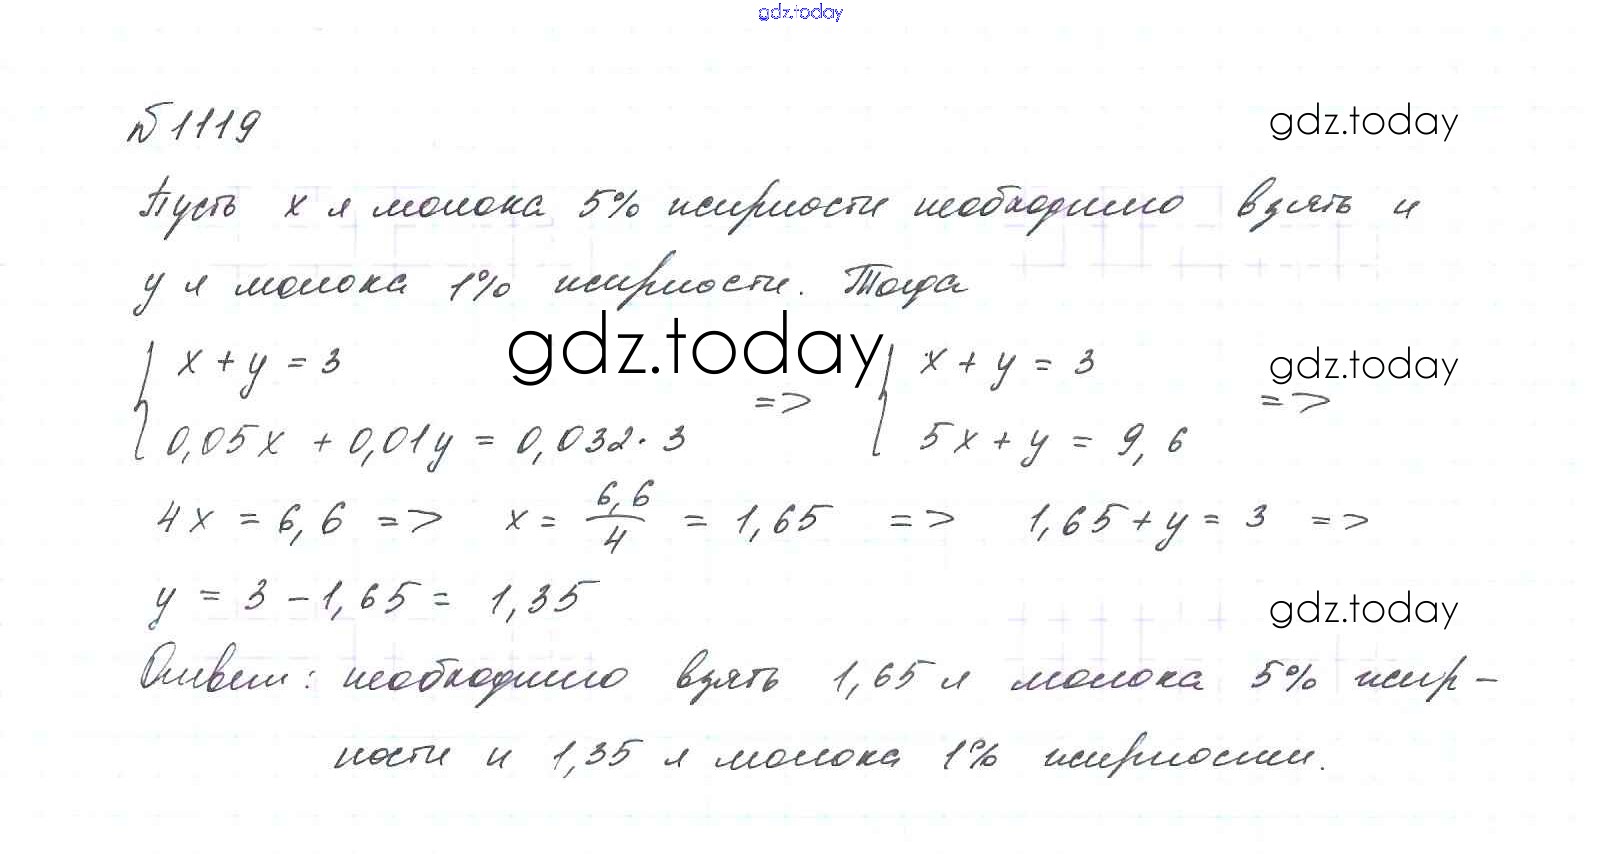 gdz.today
№1119
gdz.today
Пусть x л молока 5% жирности необходимо взять и
y л молока 1% жирности. Тогда
gdz.today
{ x + y = 3
0,05x + 0,01y = 0,032·3
=>
{ x + y = 3
5x + y = 9,6
=>
gdz.today
4x = 6,6 => x = 6,6/4 = 1,65 => 1,65 + y = 3 =>
y = 3 - 1,65 = 1,35
gdz.today
Ответ: необходимо взять 1,65 л молока 5% жир-
ности и 1,35 л молока 1% жирности.